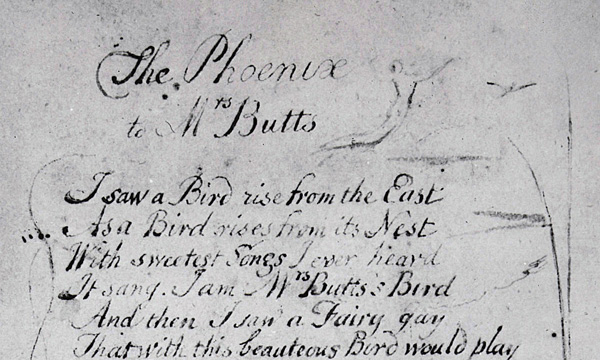 The Phoenix
to Mrs Butts
I saw a Bird rise from the East
As a Bird rises from its Nest
With sweetest Songs I ever heard
It sang. I am Mrs Butts's Bird
And then I saw a Fairy gay
That with this beauteous Bird would play